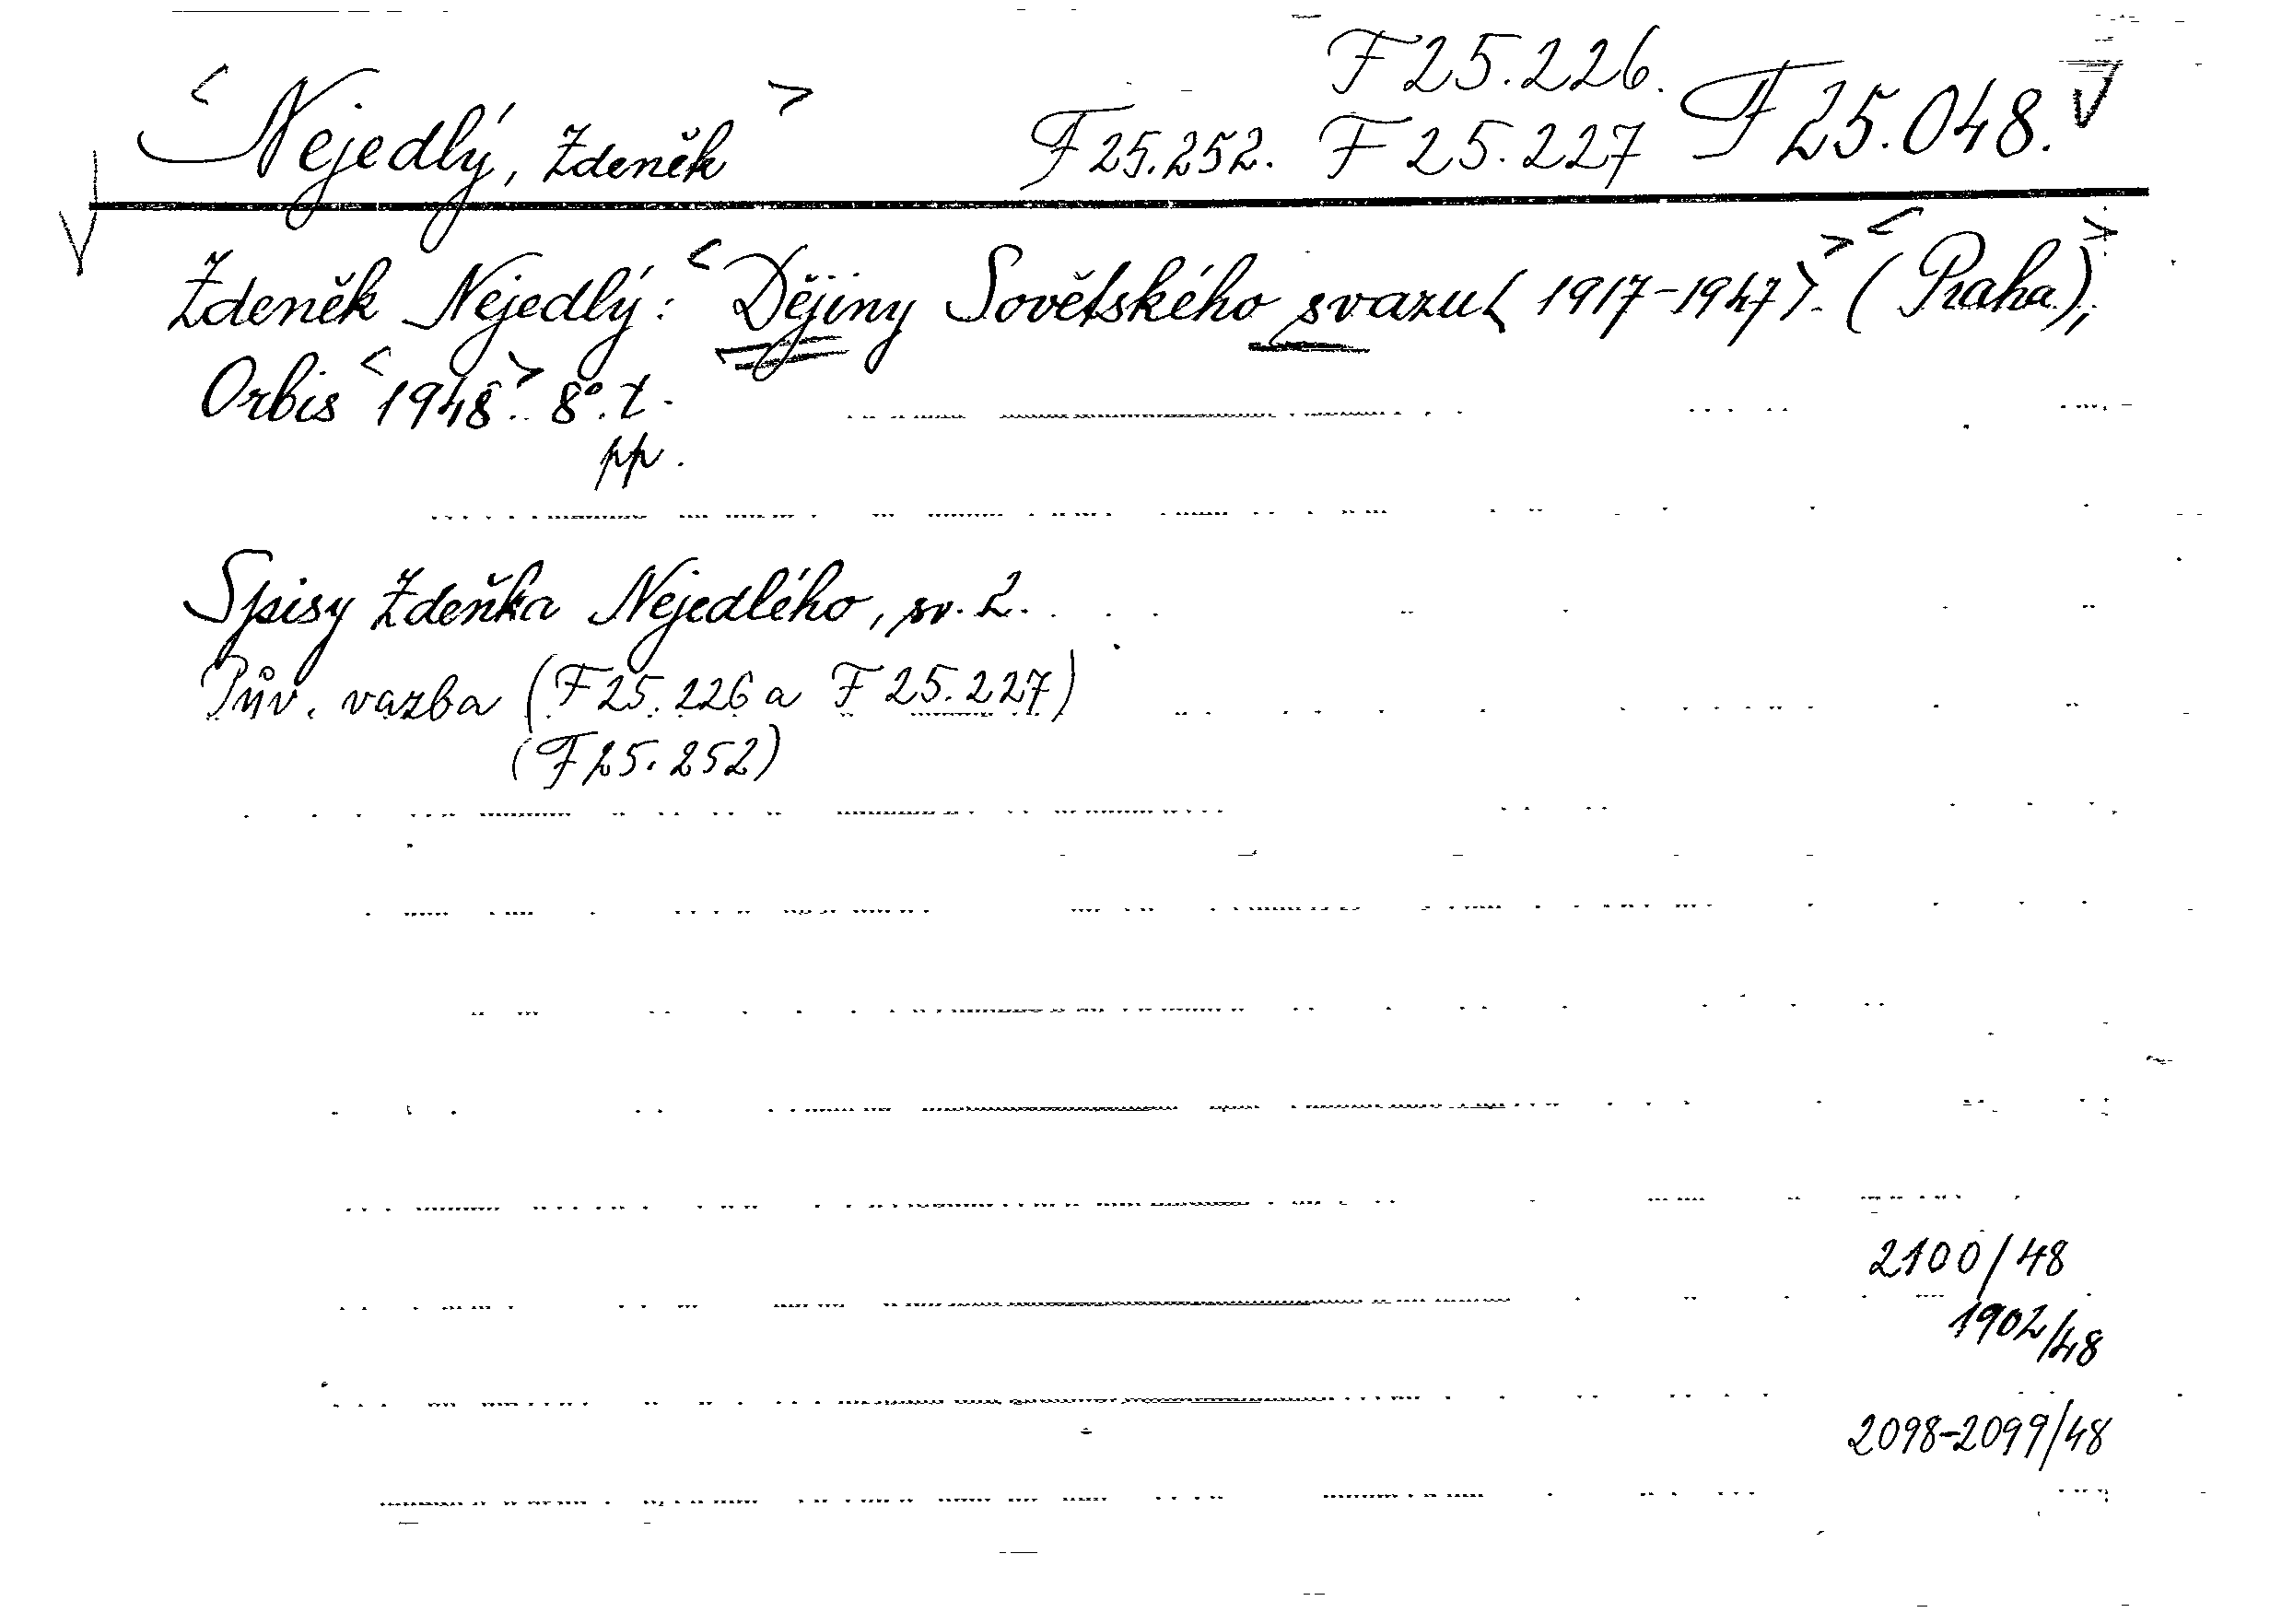 F 25.226.
<Nejedlý, Zdeněk> F 25.252. F 25.227 F 25.048.
Zdeněk Nejedlý: <Dějiny Sovětského svazu (1917-1947)>. <(Praha)>,
Orbis <1948>. 8°.
pp.
Spisy Zdeňka Nejedlého, sv. 2.
Pův. vazba (F 25.226 a F 25.227)
(F 25.252)
2100/48
1902/48
2098-2099/48